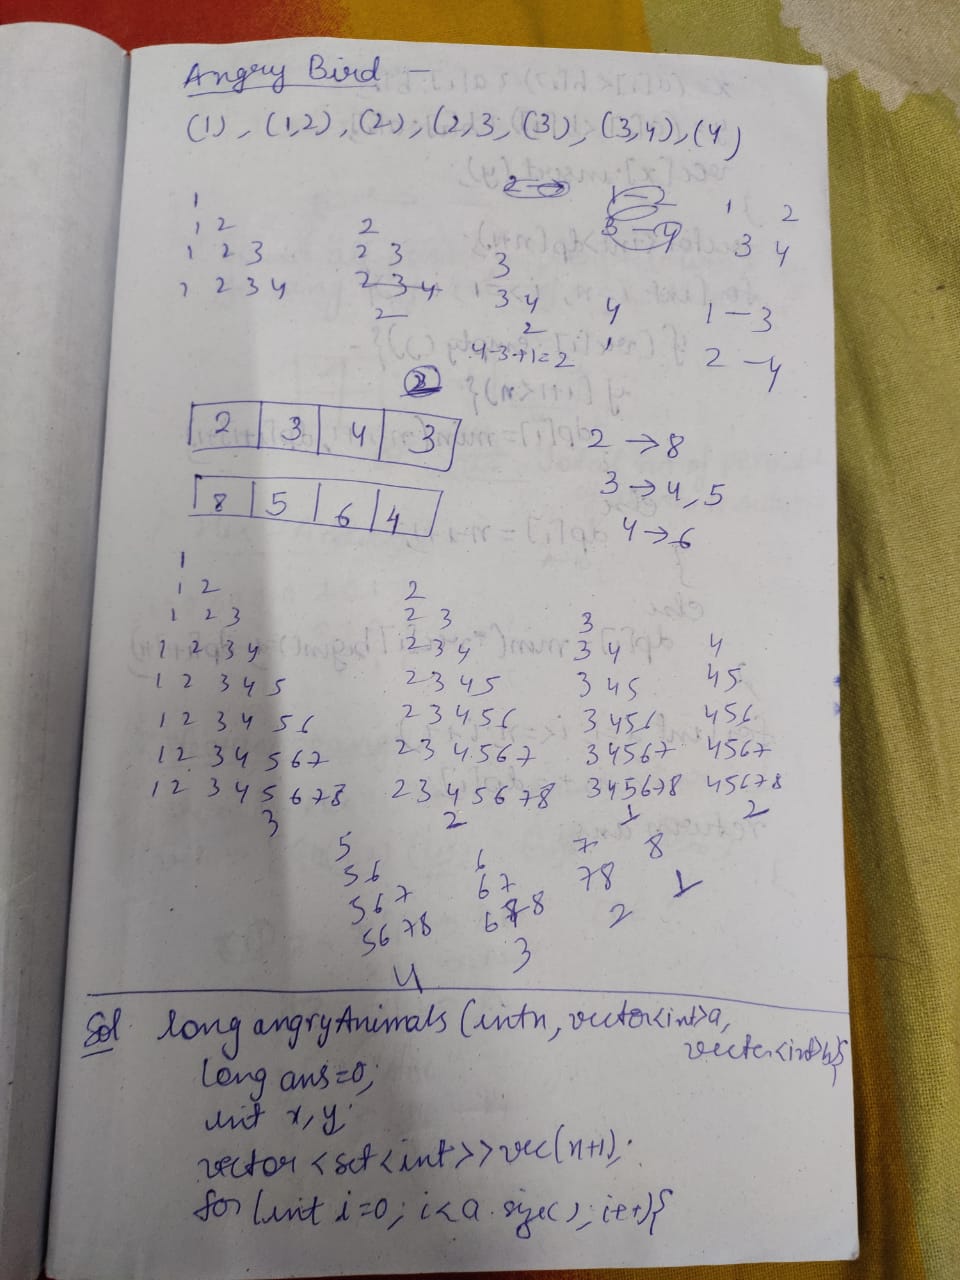 Angry Bird -
(1), (1,2), (2), (2,3, (3), (3,4), (4)
1
1 2
1 2 3
1 2 3 4
2
2 3
2 3 4
2
3
3 4
2
4-3+1=2
4
1
1 - 2
3 - 4
1 2
3 4
1 - 3
2 - 4
2 3 4 3
8 5 6 4
2 → 8
3 → 4, 5
4 → 6
1
1 2
1 2 3
1 2 3 4
1 2 3 4 5
1 2 3 4 5 6
1 2 3 4 5 6 7
1 2 3 4 5 6 7 8
3
2
2 3
2 3 4
2 3 4 5
2 3 4 5 6
2 3 4 5 6 7
2 3 4 5 6 7 8
2
3
3 4
3 4 5
3 4 5 6
3 4 5 6 7
3 4 5 6 7 8
1
4
4 5
4 5 6
4 5 6 7
4 5 6 7 8
2
5
5 6
5 6 7
5 6 7 8
4
6
6 7
6 7 8
3
7
7 8
2
8
1
Sol long angryAnimals (int n, vector<int>a,
vector<int>b){
long ans=0;
int x, y;
vector <set<int>> vec(n+1);
for (int i=0; i<a.size(); i++){